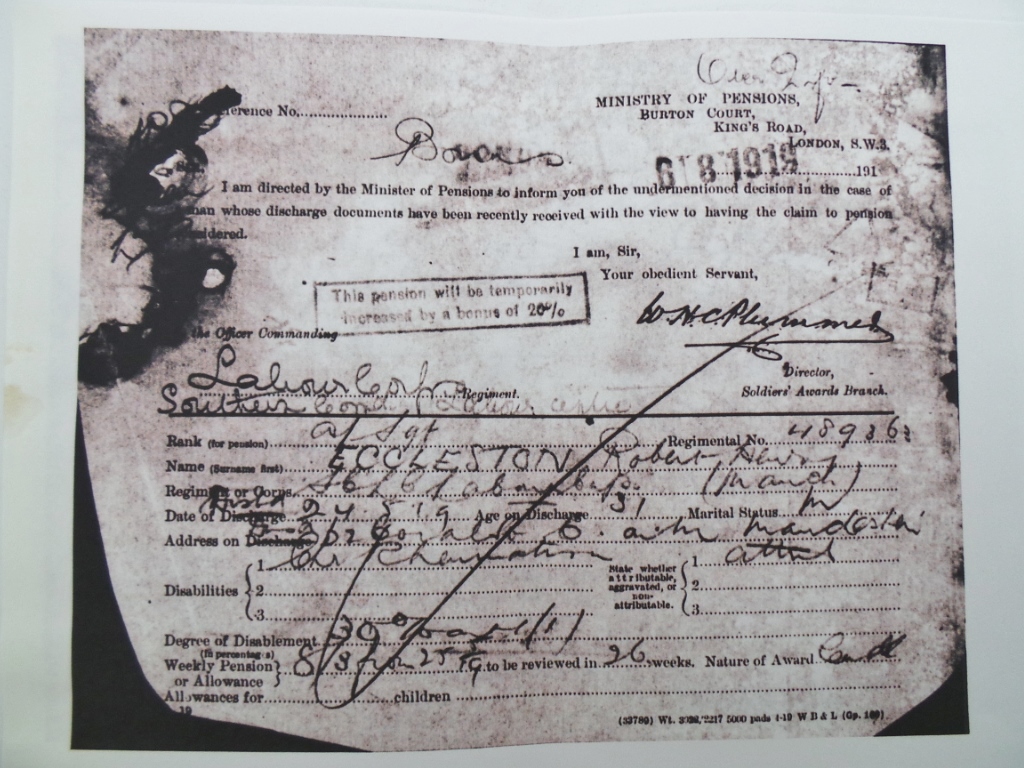 erence No.
MINISTRY OF PENSIONS,
BURTON COURT,
KING'S ROAD,
LONDON, S.W.3.
6 8 1919
191
I am directed by the Minister of Pensions to inform you of the undermentioned decision in the case of
man whose discharge documents have been recently received with the view to having the claim to pension
sidered.
I am, Sir,
Your obedient Servant,
This pension will be temporarily
increased by a bonus of 20%
W.H.C.Plummer
the Officer Commanding
Director,
Soldiers' Awards Branch.
Labour Corps Regiment.
Southern Labour Centre
Rank (for pension) a/ Sgt Regimental No. 489363
Name (Surname first) ECCLESTON, Robert Henry
Regiment or Corps Labour Corps (Manch)
Date of Discharge 24 5 19 Age on Discharge 31 Marital Status M
Address on Discharge
Disabilities 1 2 3
State whether attributable, aggravated, or non-attributable. 1 attrib 2 3
Degree of Disablement (in percentages) 30%
Weekly Pension or Allowance 8/3 from 25 5 19 to be reviewed in 26 weeks. Nature of Award Condl
Allowances for children
19
(33780) Wt. 2217 5000 pads 4-19 W B & L (Gp. 160)